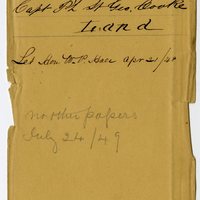 Capt Ph St Geo, Cooke
Land
Let Hon. W. P. Hall Apr 21/48
no other papers
July 24/49